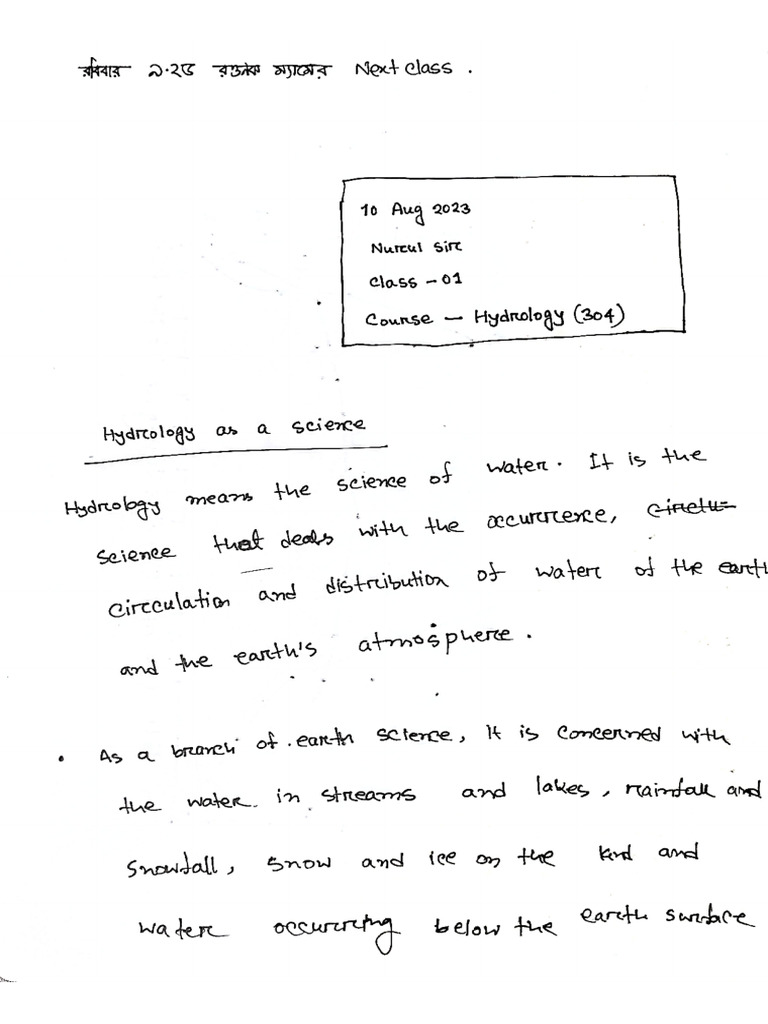 রবিবার ৯.২৫ রওনক ম্যামের Next class.
10 Aug 2023
Nurul Sir
Class - 01
Course — Hydrology (304)
Hydrology as a science
Hydrology means the science of water. It is the
science that deals with the occurrence,
circulation and distribution of water of the earth
and the earth's atmosphere.
• As a branch of earth science, it is concerned with
the water in streams and lakes, rainfall and
snowfall, snow and ice on the land and
water occurring below the earth surface